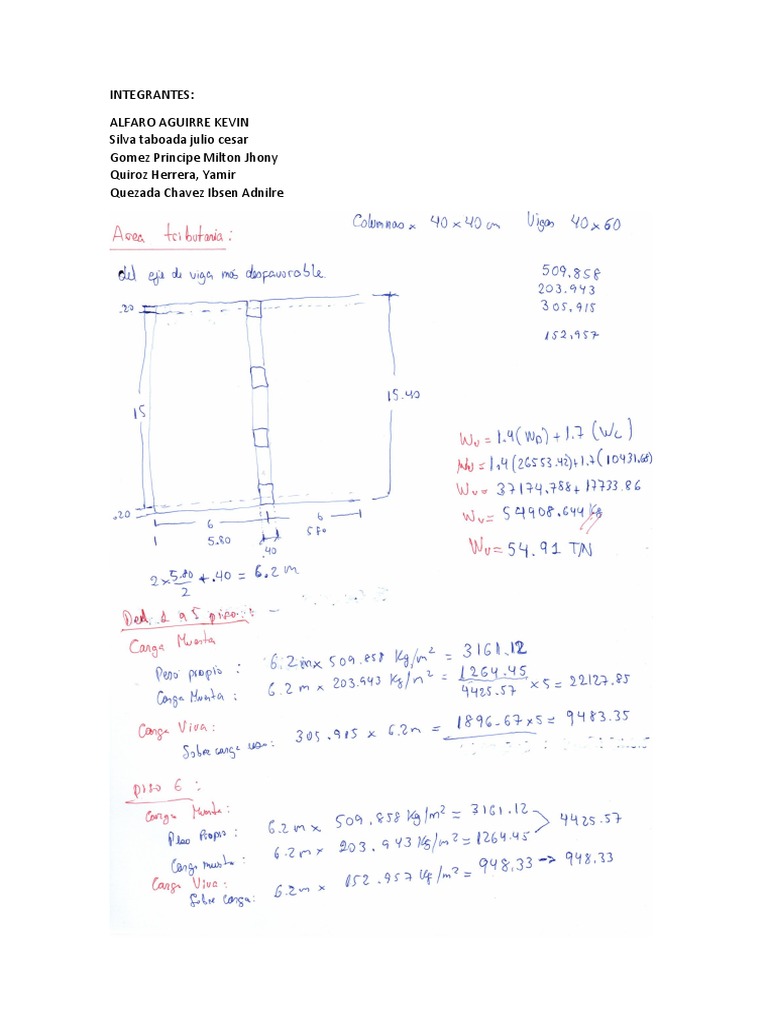 INTEGRANTES:
ALFARO AGUIRRE KEVIN
Silva taboada julio cesar
Gomez Principe Milton Jhony
Quiroz Herrera, Yamir
Quezada Chavez Ibsen Adnilre
Columnas 40 x 40 cm Vigas 40 x 60
Area tributaria:
del eje de viga más desfavorable.
509.858
203.943
305.915
152.957
.20
15
15.40
.20
6
6
5.80
.40
580
Wu = 1.4(WD) + 1.7 (WL)
Wu = 1.4(26553.42)+1.7(10431.68)
Wu = 37174.788 + 17733.86
Wu = 54908.644 Kg
Wu = 54.91 TN
2 x 5.80/2 + .40 = 6.2 m
Del 1 a 5 piso: -
Carga Muerta
Peso propio : 6.2m x 509.858 Kg/m² = 3161.12
Carga Muerta : 6.2 m x 203.943 Kg/m² = 1264.45
4425.57 x 5 = 22127.85
Carga Viva:
Sobre carga uso: 305.915 x 6.2m = 1896.67 x 5 = 9483.35
piso 6 :
Carga Muerta:
Peso Propio : 6.2 m x 509.858 Kg/m² = 3161.12
4425.57
Carga muerta : 6.2 m x 203.943 Kg/m² = 1264.45
Carga Viva :
Sobre carga: 6.2 m x 152.957 Kg/m² = 948.33 -> 948.33